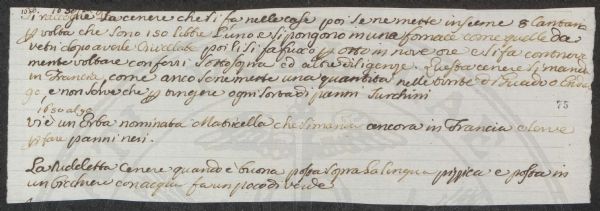 1680. 1680
Si raccoglie la cenere che si fa nelle case poi se ne mette insieme 8 Cantari
p volta che sono 150 libbre l'uno e si pongono in una fornace come quelle da
vetri dopo averle Crivellate poi li si fa fuoco p otto in nove ore e si fa continova
mente voltare con ferri sottosopra ed altre diligenze. Questa cenere si manda
in Francia, come anco se ne mette una quantità nelle di Guado
e non serve che p tingere ogni sorta di panni Turchini
75
1680 al 90
Vi è un Erba nominata che si manda ancora in Francia e serve
p fare panni neri.
La sudetta cenere quando è buona posta sopra la lingua pizzica e posta in
un bicchiere con acqua fa un poco di verde